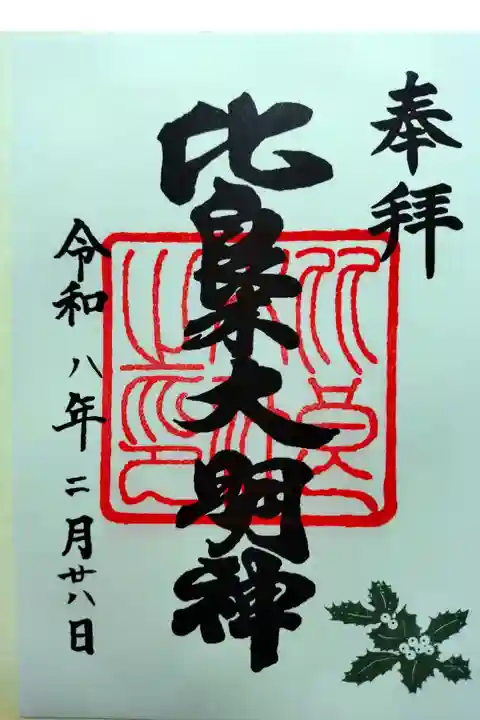 奉拝
比良木大明神
令和八年二月廿八日